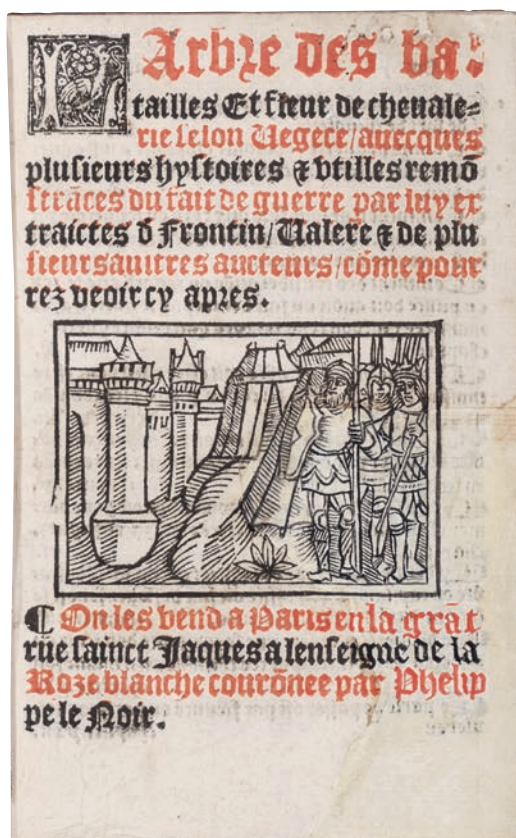 LArbre des ba-
tailles Et fleur de cheuale-
rie selon Uegece/auecques
plusieurs hystoires ⁊ vtilles remō
strāces du fait de guerre par luy ex
traictes ō Frontin/Ualere ⁊ de plu
sieurs auitres aucteurs/cōme pour
rez veoir cy apres.
¶ On les vend a Paris en la grāt
rue sainct Jaques a lenseigne de la
Roze blanche courōnee par Phelip
pe le Noir.